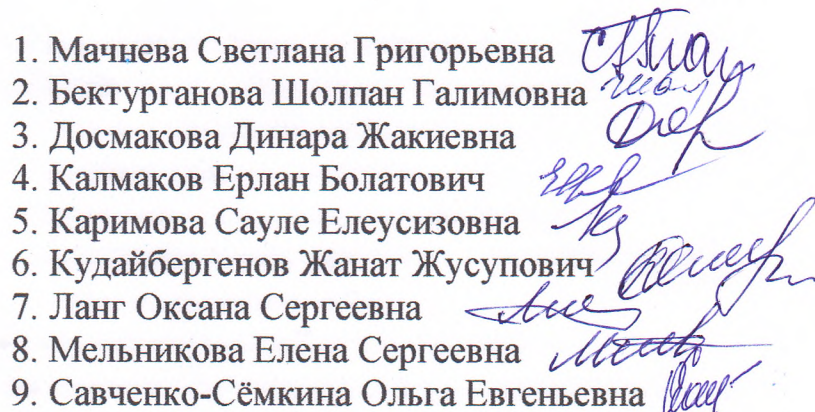 1. Мачнева Светлана Григорьевна
2. Бектурганова Шолпан Галимовна
3. Досмакова Динара Жакиевна
4. Калмаков Ерлан Болатович
5. Каримова Сауле Елеусизовна
6. Кудайбергенов Жанат Жусупович
7. Ланг Оксана Сергеевна
8. Мельникова Елена Сергеевна
9. Савченко-Сёмкина Ольга Евгеньевна